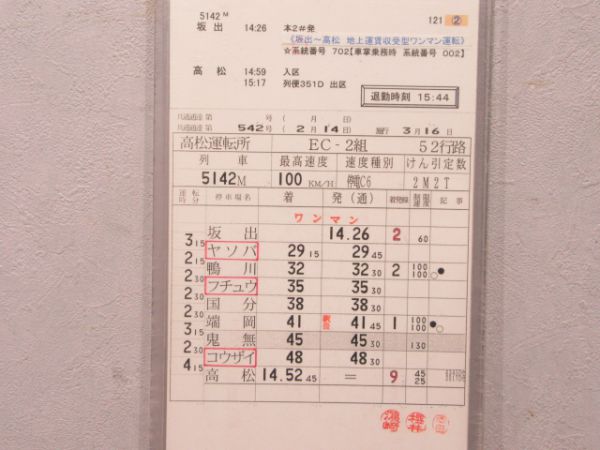 5142M
121 ②
坂出 14:26 本2#発
《坂出～高松 地上運賃収受型ワンマン運転》
☆系統番号 702【車掌乗務時 系統番号 002】
高松 14:59 入区
15:17 列便351D 出区
退勤時刻 15:44
号( 月 日)
542号(2月14日) 施行 3月16日
高松運転所 EC-2組 52行路
列車 最高速度 速度種別 けん引定数
5142M 100KM/H 停電C6 2M2T
運転時分 停車場名 着 発(通) 着発線 記事
ワンマン
坂出 14.26 2 60
3 15
ヤソバ 29 15 29 45
2 15
鴨川 32 32 30 2 100 100
2 30
フチュウ 35 35 30
2 30
国分 38 38 30
2 30
端岡 41 41 45 1 100 100
3 15
鬼無 45 45 30 130
2 30
コウザイ 48 48 30
4 15
高松 14.52 45 = 9 45 25